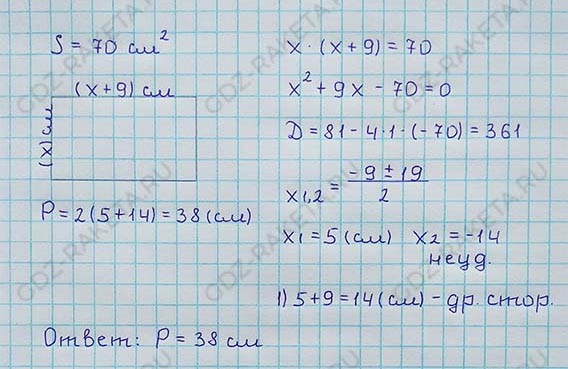 S = 70 см²
(x+9) см
(x) см
P = 2(5+14) = 38 (см)
x · (x+9) = 70
x² + 9x - 70 = 0
D = 81 - 4·1·(-70) = 361
x₁,₂ = (-9 ± 19) / 2
x₁ = 5 (см) x₂ = -14
неуд.
1) 5+9 = 14 (см) - др. стор.
Ответ: P = 38 см
GDZ-RAKETA.RU